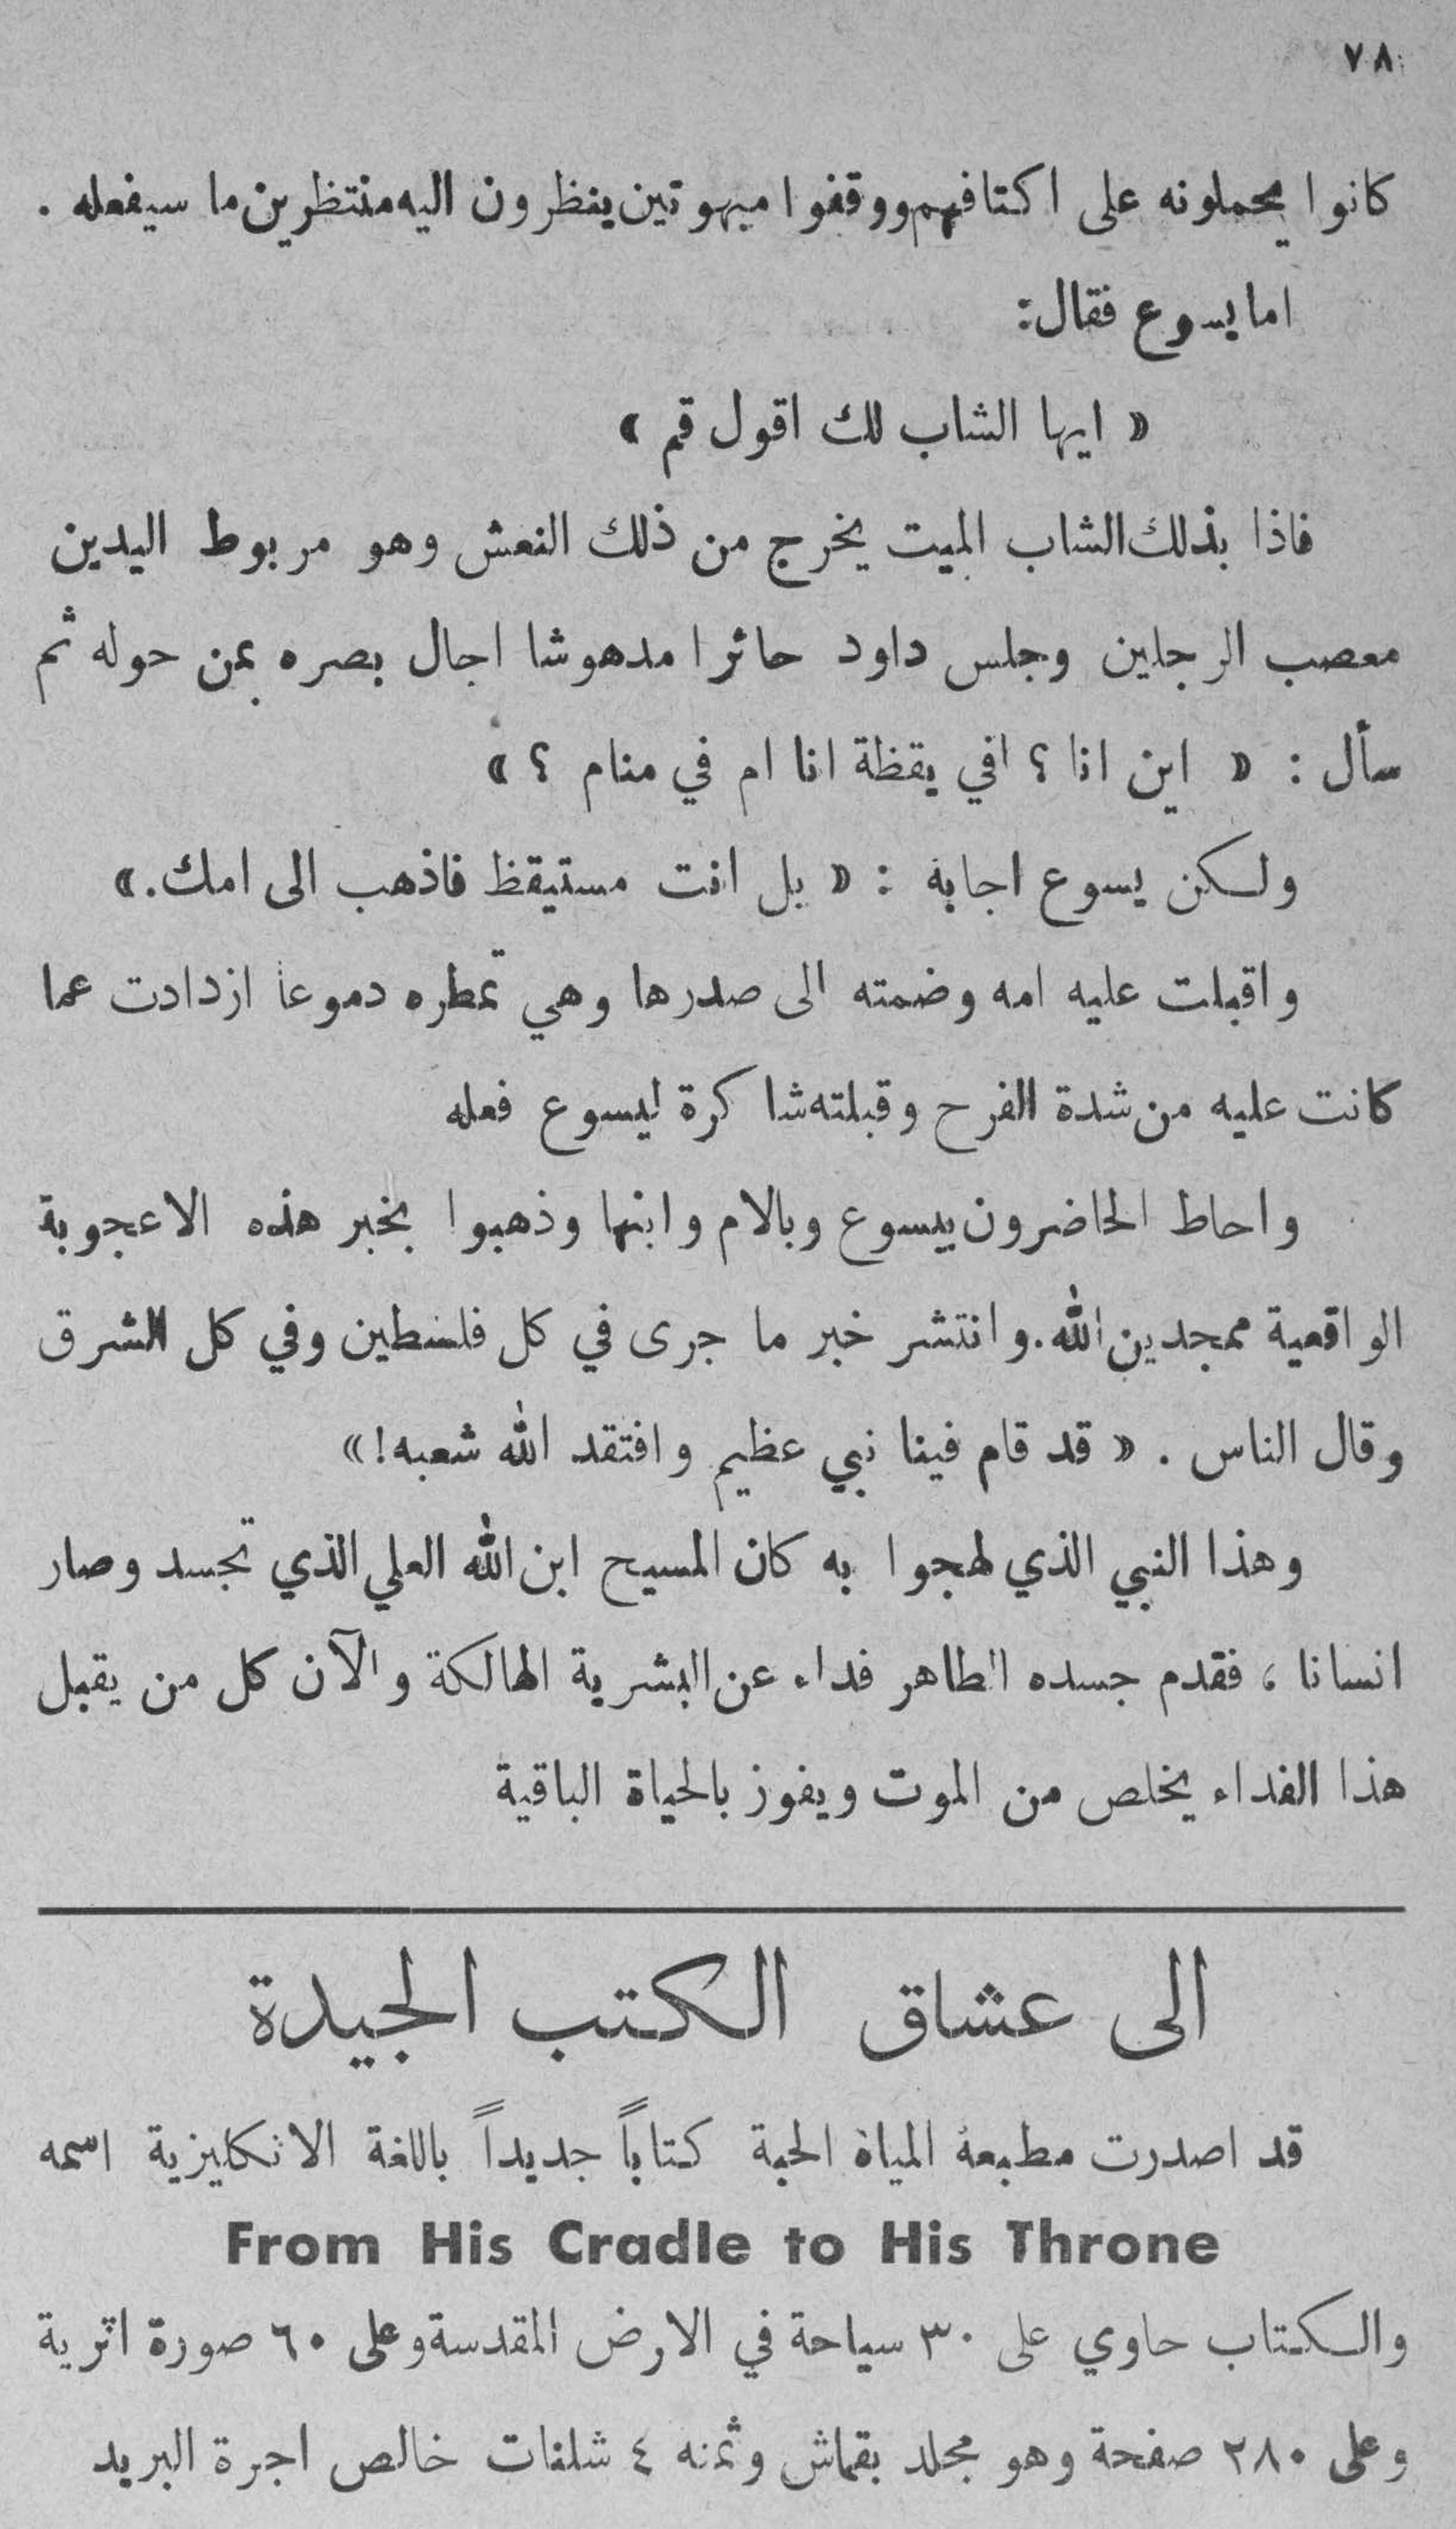 ٧٨
كانوا يحملونه على اكتافهم ووقفوا مبهوتين ينظرون اليه منتظرين ما سيفعله .
اما يسوع فقال:
« ايها الشاب لك اقول قم »
فاذا بذلك الشاب الميت يخرج من ذلك النعش وهو مربوط اليدين
معصب الرجلين وجلس داود حائرا مدهوشا اجال بصره بمن حوله ثم
سأل : « اين انا ؟ افي يقظة انا ام في منام ؟ »
ولكن يسوع اجابه : « بل انت مستيقظ فاذهب الى امك. »
واقبلت عليه امه وضمته الى صدرها وهي تمطره دموعا ازدادت عما
كانت عليه من شدة الفرح وقبلته شاكرة ليسوع فعله
واحاط الحاضرون بيسوع وبالام وابنها وذهبوا بخبر هذه الاعجوبة
الواقعية ممجدين الله. وانتشر خبر ما جرى في كل فلسطين وفي كل الشرق
وقال الناس . « قد قام فينا نبي عظيم وافتقد الله شعبه! »
وهذا النبي الذي لهجوا به كان المسيح ابن الله العلي الذي تجسد وصار
انسانا ، فقدم جسده الطاهر فداء عن البشرية الهالكة والآن كل من يقبل
هذا الفداء يخلص من الموت ويفوز بالحياة الباقية
الى عشاق الكتب الجيدة
قد اصدرت مطبعة المياه الحية كتاباً جديداً باللغة الانكليزية اسمه
From His Cradle to His Throne
والكتاب حاوي على ٣٠ سياحة في الارض المقدسة وعلى ٦٠ صورة اثرية
وعلى ٢٨٠ صفحة وهو مجلد بقماش وثمنه ٤ شلنات خالص اجرة البريد